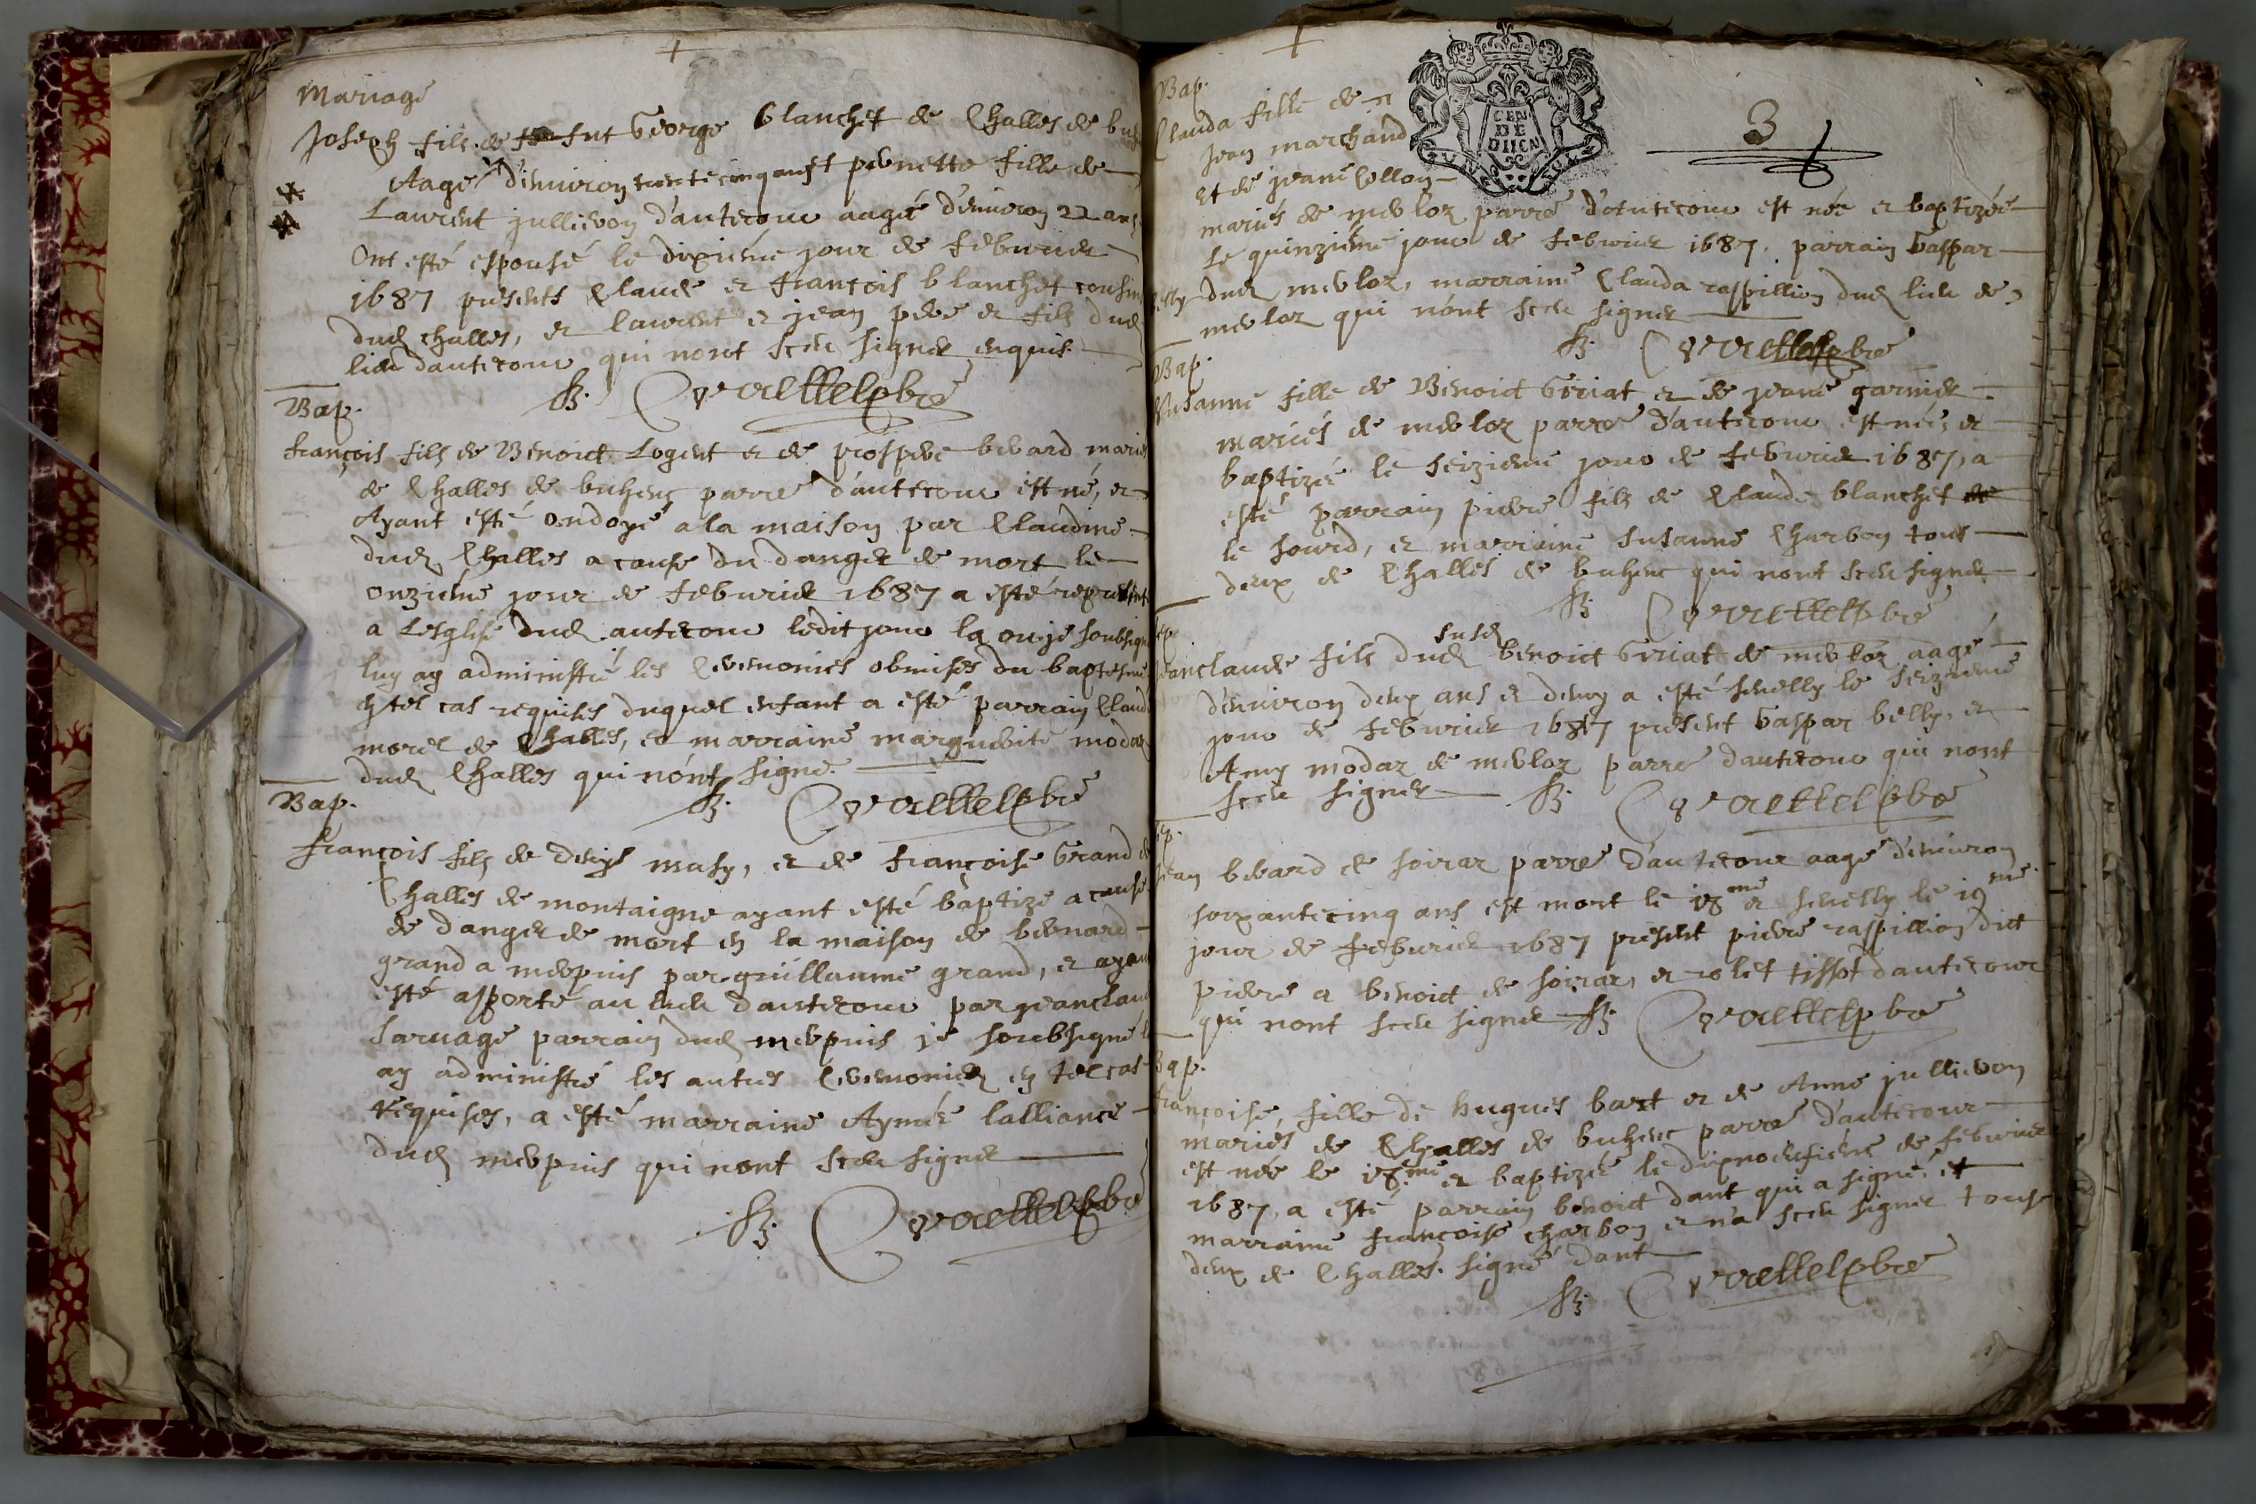 Mariage
Joseph fils de feu George blanchet de Challes de
Aagé d'environ trentecinq ans et pernette fille de
Laurent jullieron d'autecour aagée d'environ 22 ans
Ont esté espousé le dixiéme jour de febvrier
1687 présents Claude et françois blanchet cousin
dud challes, et laurent et jean pere et fils dud
lieu dautecour qui nont sceu signer enquis
Bap.
françois fils de Benoict Logent et de prospere berard mariés
de Challes de buhenc parre d'autecour est né, et
Ayant esté ondoyé a la maison par Claudine
dud Challes a cause du danger de mort le
onziéme jour de febvrier 1687 a esté
a Lesglise dud autecour ledit jour la ou je soubsigné
luy ay administré les Ceremonies obmises du baptesme
en tel cas requises duquel enfant a esté parrain Claude
morel de Challes, et marraine marguerite modaz
dud Challes qui n'ont signé
Bap.
françois fils de denys masy, et de françoise Grand de
Challes de montaigne ayant esté baptizé a cause
de danger de mort en la maison de bernard
grand a merpuis par guillaume grand, et ayant
esté apporté au lieu dautecour par jeanclaude
sarvage parrain dud merpuis je soubsigné
ay administré les autres Ceremonies en tel cas
requises, a esté marraine Aymée lalliance
dud merpuis qui nont sceu signer
3
GEN
DE
DIION
Bap.
Clauda fille de
jean marchand
et de jeane Collon
mariés de merloz parre d'autecour est née et baptizée
le quinziéme jour de febvrier 1687. parrain Gaspar
belly dud merloz, marraine Clauda raspillion dud lieu de
merloz qui n'ont sceu signer
Bap.
Susanne fille de Benoict Griat et de jeane garnier
mariés de merloz parre d'autecour est née et
baptizée le seizieme jour de febvrier 1687, a
esté parrain pierre fils de Claude blanchet
le sourd, et marraine susanne Charbon tous
deux de Challes de buhenc qui nont sceu signer
Sep.
susd
jeanclaude fils dud benoict Griat de merloz aagé
d'environ deux ans et demy a esté sevelly le seizieme
jour de febvrier 1687 présent Gaspar belly, et
Amy modaz de merloz parre dautecour qui nont
sceu signer
Sep.
jean berard de soiraz parre d'autecour aagé d'environ
soixantecinq ans est mort le 18me et sevelly le 19me
jour de febvrier 1687 présent pierre raspillion dict
pierre a benoict de soiraz, et rolet tissot dautecour
qui nont sceu signer
Bap.
françoise fille de hugues bart et de Anne jullieron
mariés de Challes de buhenc parre d'autecour
est née le 18me et baptizée le dixneufiéme de febvrier
1687, a esté parrain benoict dant qui a signé, et
marraine françoise charbon et n'a sceu signer tous
deux de Challes. signé dant